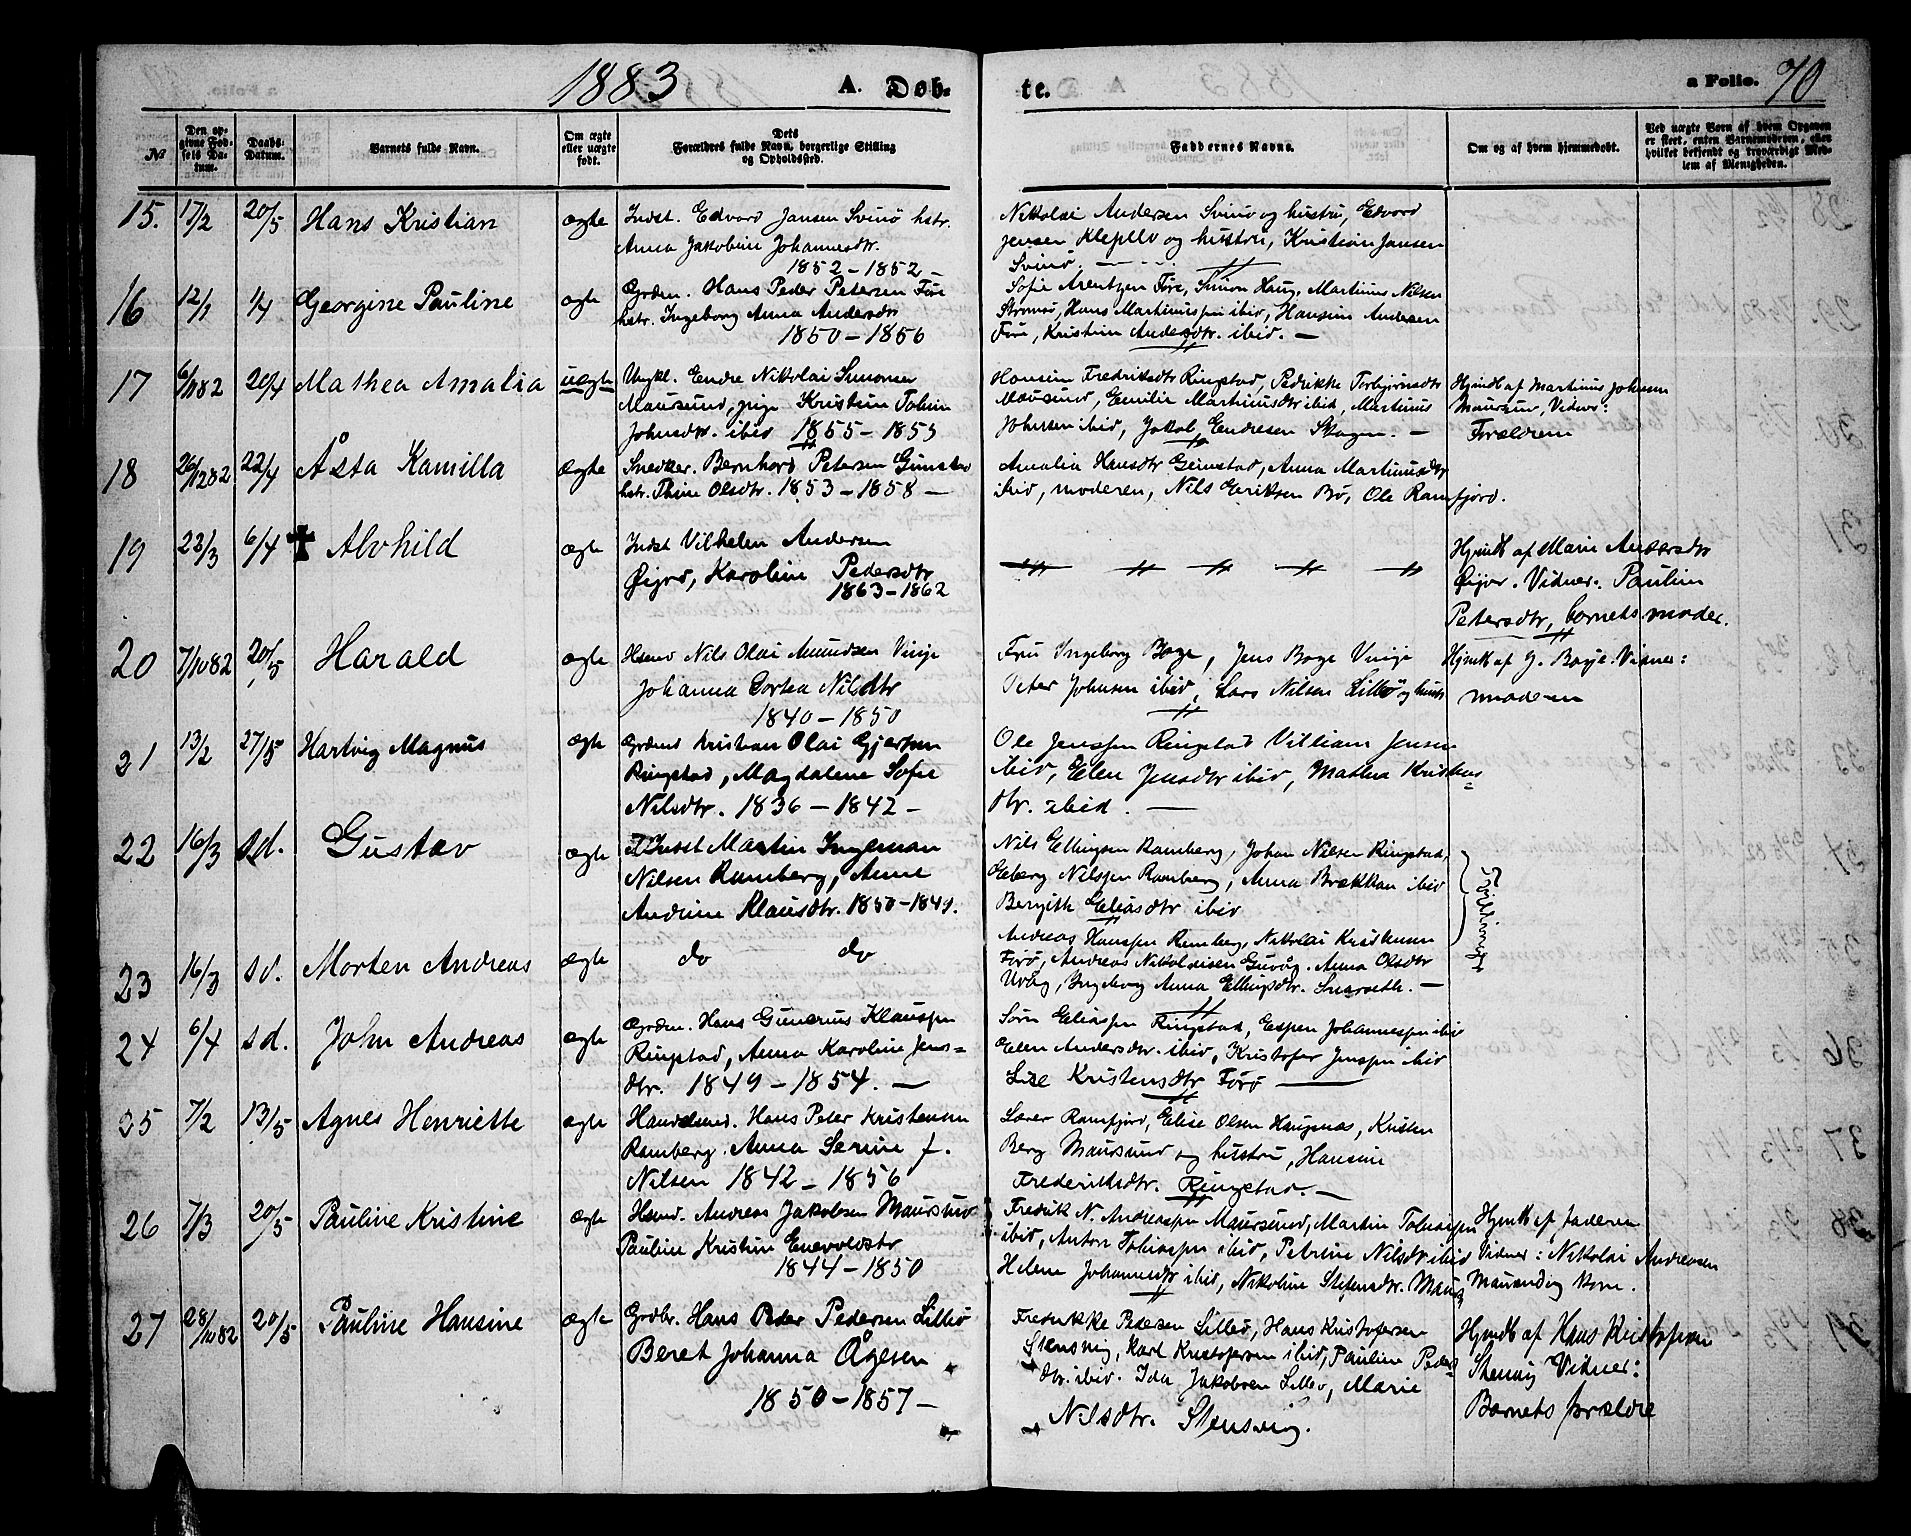 1883
A. Døb-
te.
a Folio. 70
№
Den op-
givne Fød-
sels Da-
tum.
Daabs-
Datum.
Barnets fulde Navn.
Om ægte
eller uægte
født.
Dets
Forældres fulde Navn, borgerlige Stilling
og Opholdssted.
Faddernes Navne.
Om og af hvem hjemmedøbt.
Ved uægte Børn af hvem Opgaven
er skeet, enten Barnemoderen, eller
hvilket bekjendt og troværdigt Med-
lem af Menigheden.
15. 17/2 20/5 Hans Kristian ægte Indst. Edvard Jansen Svinø hstr.
Anna Jakobine Johannesdtr.
1852 – 1852 –
Nikolai Andersen Svinø og hustru, Edvard
Jensen Klepllv og hustru, Kristian Jansen
Svinø.
16 12/1 1/4 Georgine Pauline ægte Grdm. Hans Peder Petersen Føre
hstr. Ingeborg Anna Andersdtr
1850 – 1856
Sofie Arentzen Føre, Simon Haug, Martinus Nilsen
Strømø, Hans Martinussen ibid, Hansine Andersen
Føre, Kristine Andersdtr. ibid. –
17 6/11 82 20/4 Mathea Amalia uægte Ungkl. Endre Nikolai Simonsen
Maursund, pige Kristine Tobine
Johnsdtr. ibid 1855 – 1855
Hansine Fredriksdtr Ringstad, Pedrikke Torbjørnsdtr
Maursund, Emilie Martinusdtr ibid, Martinus
Johnsen ibid, Jakob Endresen Skagen. –
Hjmdt af Martinus Johnsen
Maursun, Vidner:
Forældrene
18 26/12 82 22/4 Åsta Kamilla ægte Snedker. Bernhard Petersen Gimstad
hstr. Thine Olsdtr. 1853 – 1858 –
Amalia Hansdtr Gimstad, Anna Martinusdtr
ibid, moderen, Nils Eriksen Bø, Ole Ramfjord.
19 23/3 6/4 Alvhild ægte Indst Vilhelm Andersen
Øijord, Karoline Pedersdtr
1863 – 1862
Hjmdt af Marie Andersdtr
Øijor. Vidner. Pauline
Petersdtr, barnets moder.
20 7/10 82 20/5 Harald ægte Hsmd Nils Olai Amundsen Vinje
Johanna Dortea Nilsdtr
1840 – 1850
Fru Ingeborg Boye, Jens Boye Vinje
Peter Johnsen ibid, Lars Nilsen Lillø og hustr
Hjmdt af J. Boye. Vidner:
moderen
21 13/2 27/5 Hartvig Magnus ægte Grdmd Kristian Olai Gjertsen
Ringstad, Magdalene Sofie
Nilsdtr. 1836 – 1842 –
Ole Jenssen Ringstad Villiam Jensen
ibid, Elen Jensdtr ibid, Mathea Kristens=
dtr. ibid. –
22 16/3 sd. Gustav ægte Indst Martin Ingeman
Nilsen Ramberg, Anne
Andrine Klausdtr. 1850 – 1849.
Nils Ellingsen Ramberg, Johan Nilsen Ringstad,
Esberg Nilssen Ramberg, Anna Brækkan ibid
Bergith Eliasdtr ibid
Tvillinger
23 16/3 sd. Morten Andreas ægte do do
Andreas Hanssen Ramberg, Nikolai Kristensen
Førø, Andreas Nikolaisen Guvåg. Anna Olsdtr
Uvåg, Ingeborg Anna Ellingsdtr. Snarseth. –
24 6/4 sd. John Andreas ægte Grdm. Hans Gunerius Klaussen
Ringstad, Anna Karoline Jens=
dtr. 1849 – 1854. –
Sørn Eliassen Ringstad, Espen Johannessen ibid
Elen Andersdtr. ibid, Kristofer Jenssen ibid
Lise Kristensdtr Førø –
25 7/2 13/5 Agnes Henriette ægte Handelsmd. Hans Peter Kristensen
Ramberg. Anna Serine f.
Nilsen 1842 – 1856
Lærer Ramfjord, Elise Olsen Haugsnæs, Kristen
Berg Maursund og hustru, Hansine
Frederiksdtr. Ringstad. –
26 7/3 20/5 Pauline Kristine ægte Hsmd. Andreas Jakobsen Maursund
Pauline Kristine Enevoldsdtr
1844 – 1850
Fredrik N. Andreassen Maursund, Martin Tobiassen
ibid, Anton Tobiassen ibid, Petrine Nilsdtr ibid
Helene Johannesdtr ibid, Nikoline Stefensdtr. Maurs
Hjmdt af faderen
Vidner: Nikolai Andreasen
Maursund og kone.
27 28/10 82 20/5 Pauline Hansine ægte Grdbr. Hans Peder Pedersen Lillø
Beret Johanna Ågesen
1850 – 1857 –
Fredrikke Pedersen Lillø, Hans Kristofersen
Stensvig, Karl Kristofersen ibid, Pauline Peders
dtr. ibid. Ida Jakobsen Lillø, Marie
Nilsdtr. Stensvig.
Hjmdt af Hans Kristofersen
Stensvig Vidner:
Barnets forældre